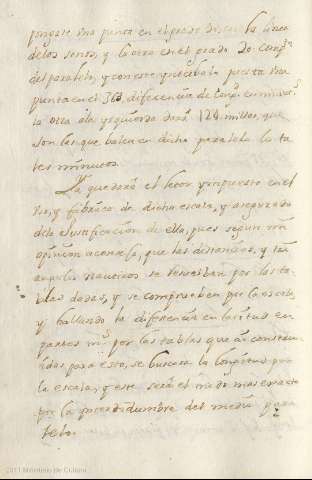 pongase una punta en el grado de sesenta linea
de los senos, y la otra en el grado 30 Comp.
del paralelo, y con este puesta una
punta en el 360, diferencia de long. en minut.s
la otra ala ysquierda dará 124 millas, que
son los que balen en dicho paralelo los ta
les minutos.
Ya quedará el letor ynpuesto en el
uso, y fabrica de dicha escala, y asegurado
de la Justificacion de ella, pues segun mi
opinion aconsejo, que las distancias, y
angulos nauticos se resuelban por las ta
blas dadas, y se comprueben por la escala,
y hallando la diferencia en latitud en
partes m.s por las tablas que an constru
idas para esto, se buscara la longitud por
la escala, y este será el modo mas exacto
por la yncertidumbre del medio para
lelo.
2011 Ministerio de Cultura